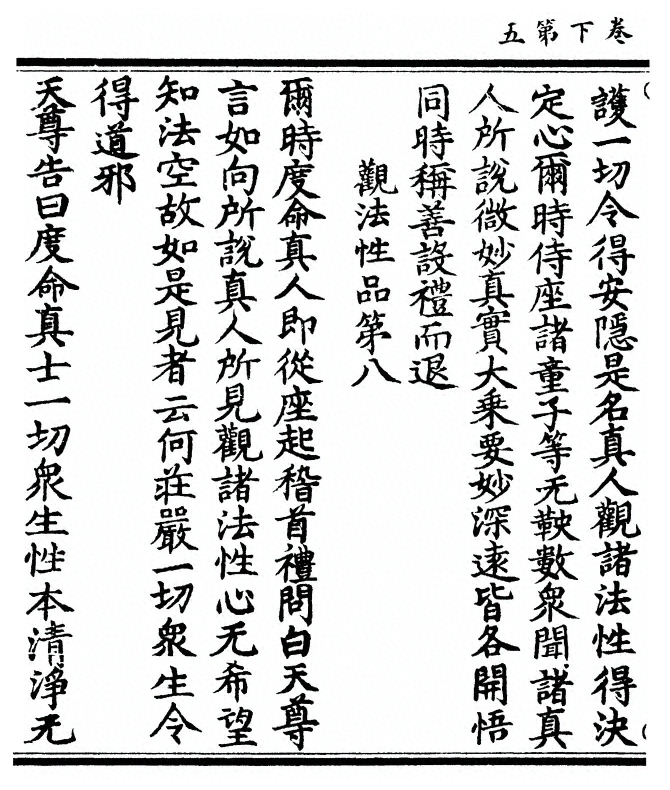 卷下第五
護一切令得安隱是名真人觀諸法性得決
定心爾時侍座諸童子等无鞅數衆聞諸真
人所說微妙真實大乘要妙深遠皆各開悟
同時稱善設禮而退
觀法性品第八
爾時度命真人即從座起稽首禮問白天尊
言如向所說真人所見觀諸法性心无希望
知法空故如是見者云何莊嚴一切衆生令
得道邪
天尊告曰度命真士一切衆生性本清淨无